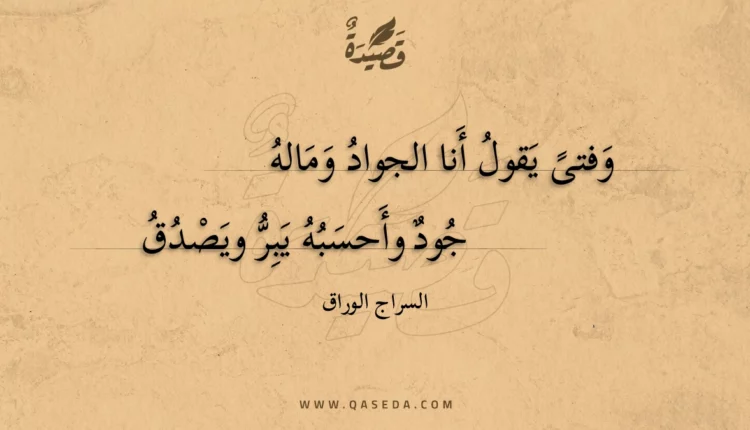 قَصِيْدَةٌ
وَفتىً يَقولُ أَنا الجوادُ وَمَالهُ
جُودٌ وأَحسَبُهُ يَبِرُّ ويَصْدُقُ
السراج الوراق
WWW.QASEDA.COM